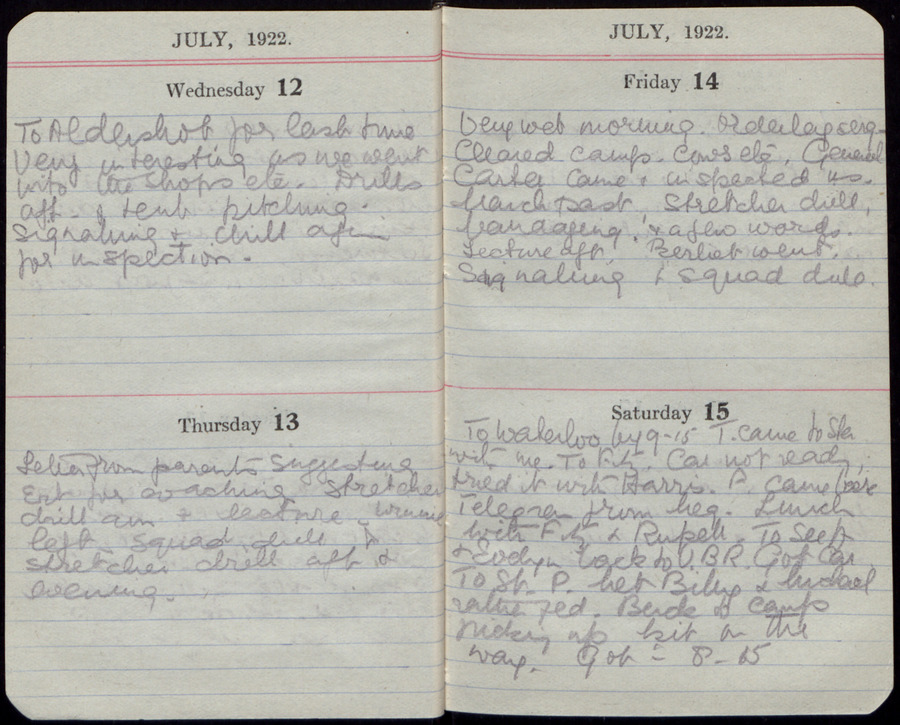 JULY, 1922.
Wednesday 12
To Aldershot for last time
Very interesting as we went
into the shops etc. Drills
aft. & tent pitching.
Signalling & drill again
for inspection.
Thursday 13
Letter from parents suggesting
for coaching. Stretcher
drill am & lecture.
left squad drill &
stretcher drill aft &
evening.
JULY, 1922.
Friday 14
Very wet morning. Orderlay serg-
Cleared camp. Cows etc, General
Carter came & inspected us.
March past, stretcher drill,
bandaging, & a few words.
Lecture aft. went.
Signalling & squad drill.
Saturday 15
To Waterloo by 9-15 T. came to Sta
with me. To Fitz. Car not ready,
tried it with Harris. P. came
Telegram from Meg. Lunch
with Fitz & Rupell. To
& Evelyn back to U.B.R. Got Car
To St. P. met Billy & Michael
Back to camp
picking up kit on the
way. Got - 8-15